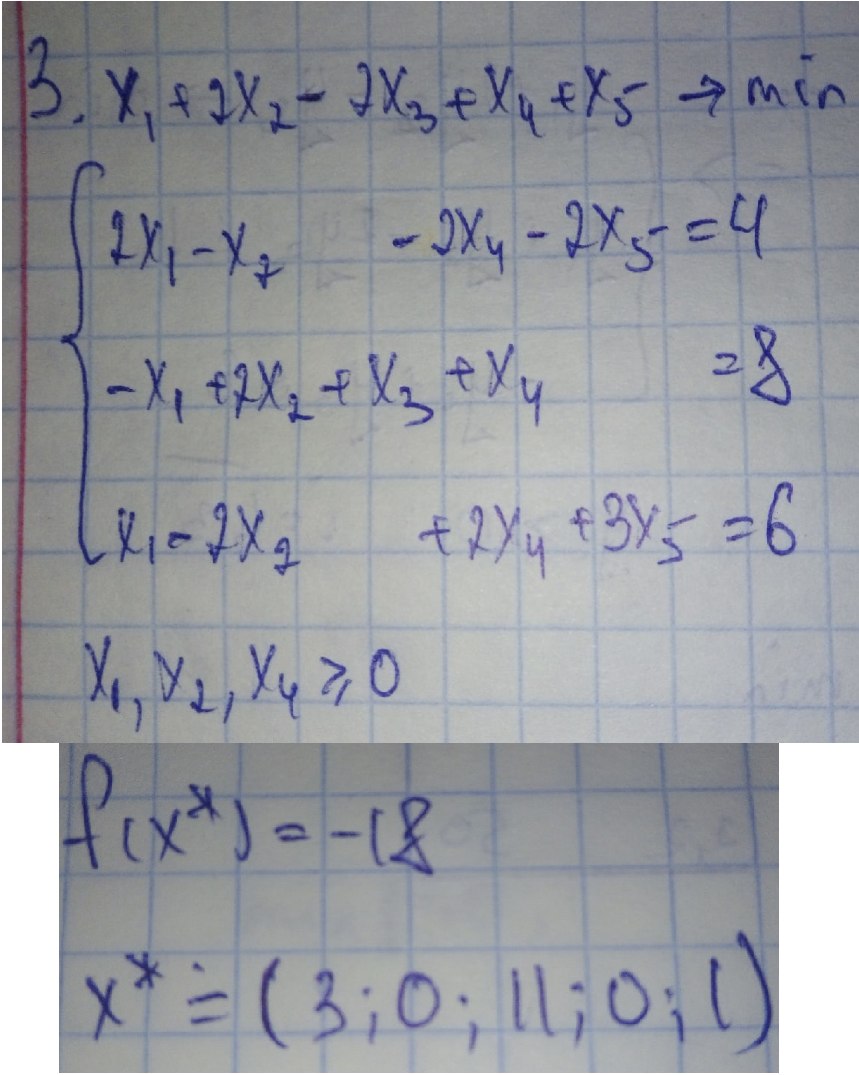 3. x₁ + 2x₂ - 2x₃ + x₄ + x₅ → min
2x₁ - x₂ - 2x₄ - 2x₅ = 4
-x₁ + 2x₂ + x₃ + x₄ = 8
x₁ - 2x₂ + 2x₄ + 3x₅ = 6
x₁, x₂, x₄ ⩾ 0
f(x*) = -18
x* = (3; 0; 11; 0; 1)